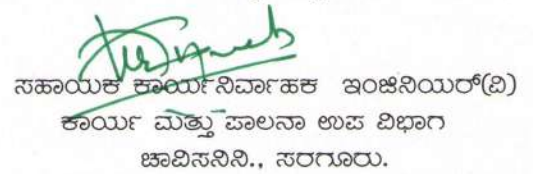 ಸಹಾಯಕ ಕಾರ್ಯನಿರ್ವಾಹಕ ಇಂಜಿನಿಯರ್(ವಿ)
ಕಾರ್ಯ ಮತ್ತು ಪಾಲನಾ ಉಪ ವಿಭಾಗ
ಚಾವಿಸನಿನಿ., ಸರಗೂರು.